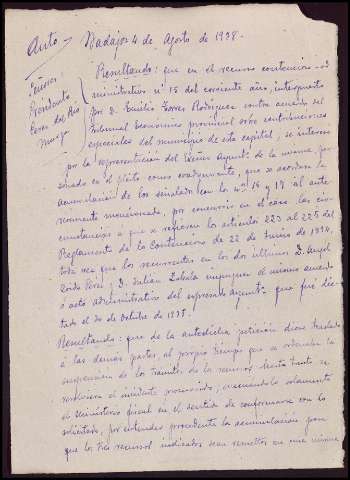 Auto - Badajoz 4 de Agosto de 1928.-
Señores
Presidente
Perez del Rio
Murga
Resultando: que en el recurso contencioso-ad
ministrativo nº 15 del corriente año, interpuesto
por D. Emilio Torres Rodriguez contra acuerdo del
Tribunal Económico provincial sobre contribuciones
especiales del municipio de esta capital, se intereso
por la representacion del Excmo Ayuntº de la misma, per-
sonado en el pleito como coadyuvante, que se acordara la
acumulacion de los señalados con los nos 16 y 17 al ante-
riormente mencionado, por concurrir en el caso las cir-
cunstancias a que se refieren los articulos 223 al 225 del
Reglamento de lo Contencioso de 22 de Junio de 1894,
toda vez que los recurrentes en los dos ultimos D. Angel
Perez y D. Julian impugnan el mismo acuerdo
ó acto administrativo del expresado Ayuntº que fué dic-
tado el de Octubre de
Resultando: que de la antedicha peticion diose traslado
á las demas partes, al propio tiempo que se ordenaba la
suspension de los tramites de los recursos hasta tanto se
resolviera el incidente promovido, evacuandolo solamente
el Ministerio fiscal en el sentido de conformarse con lo
solicitado, por entender procedente la acumulación para
que los tres recursos indicados sean resueltos en una misma